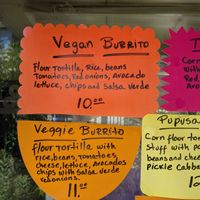 Vegan Burrito
Flour Tortilla, Rice, beans
Tomatoes, Red onions, Avocado
lettuce, chips and Salsa Verde
10.00
Veggie Burrito
flour Tortilla with
rice, beans, Tomatoes,
cheese, lettuce, Avocados
chips with Salsa Verde
red onions.
11.00
T
Corn
with
Red
Avo
Pupusa
Corn flour tor
Stuff with po
beans and chee
Pickle Cabba
12